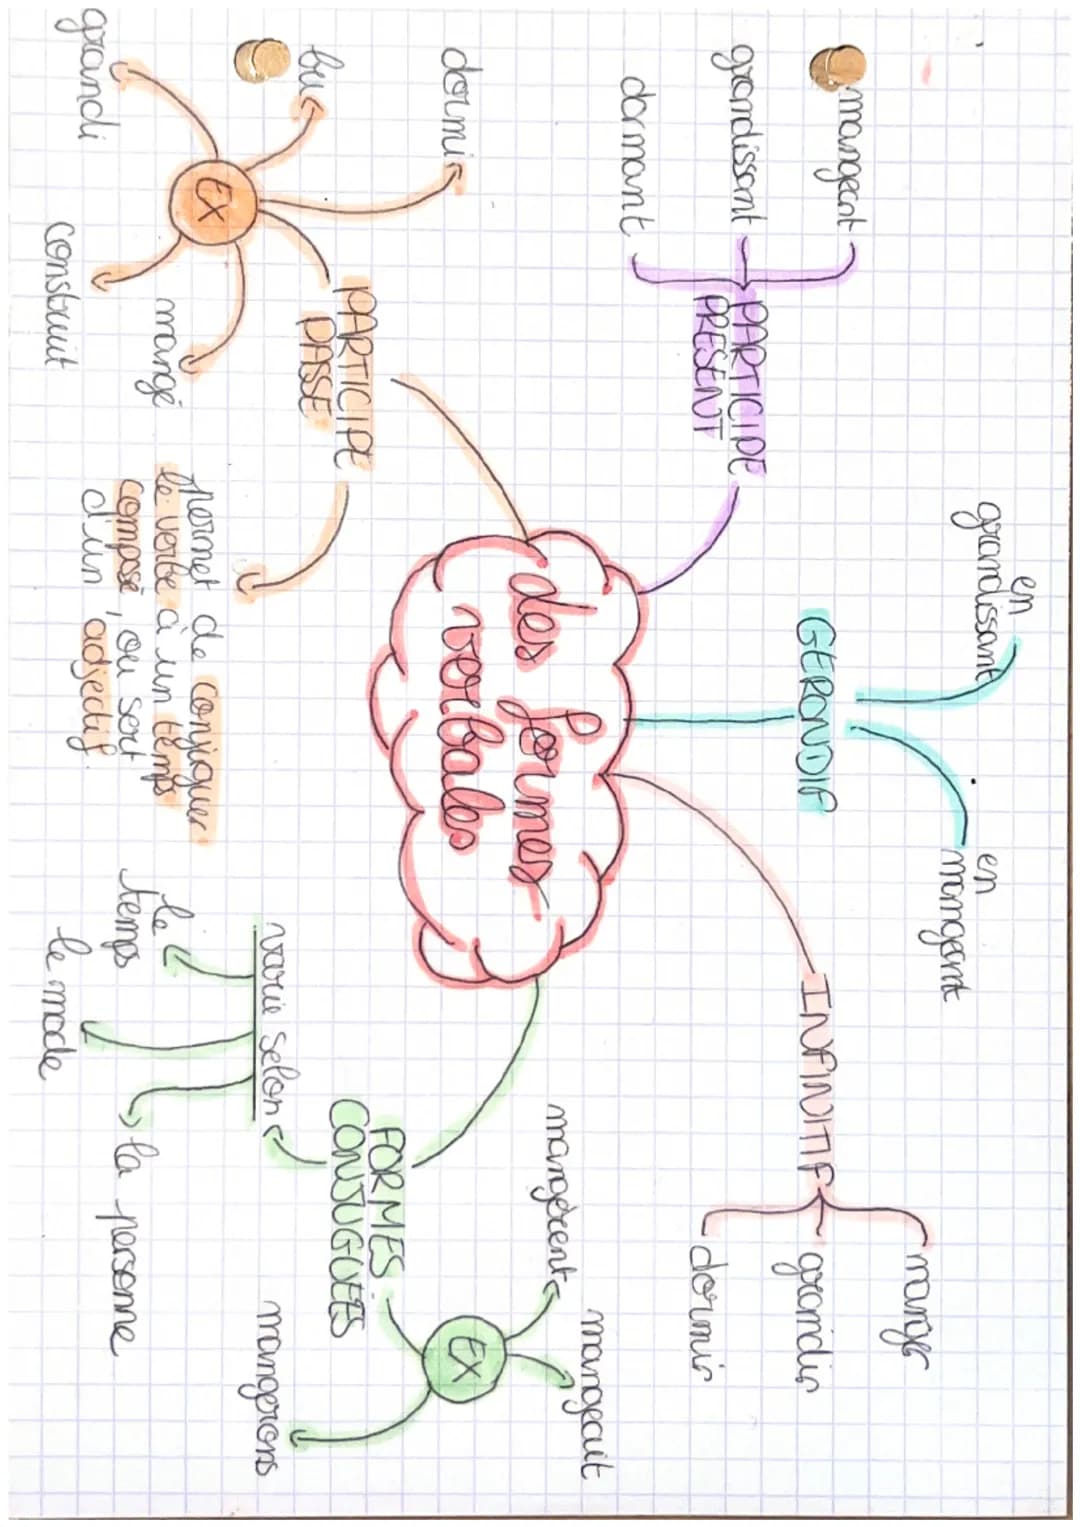 des formes
verbales
PARTICIPE
PRESENT
mangeant
grandissant
dormant
GERONDIF
en
grandissant
en
mangeant
INFINITIF
manger
grandir
dormir
FORMES
CONJUGUÉES
Ex
mangèrent
mangeait
mangerons
varie selon
le
temps
le mode
la personne
PARTICIPE
PASSE
Ex
dormi
bu
grandi
construit
mangé
permet de conjuguer
le verbe à un temps
composé, ou sert
d'un adjectif.